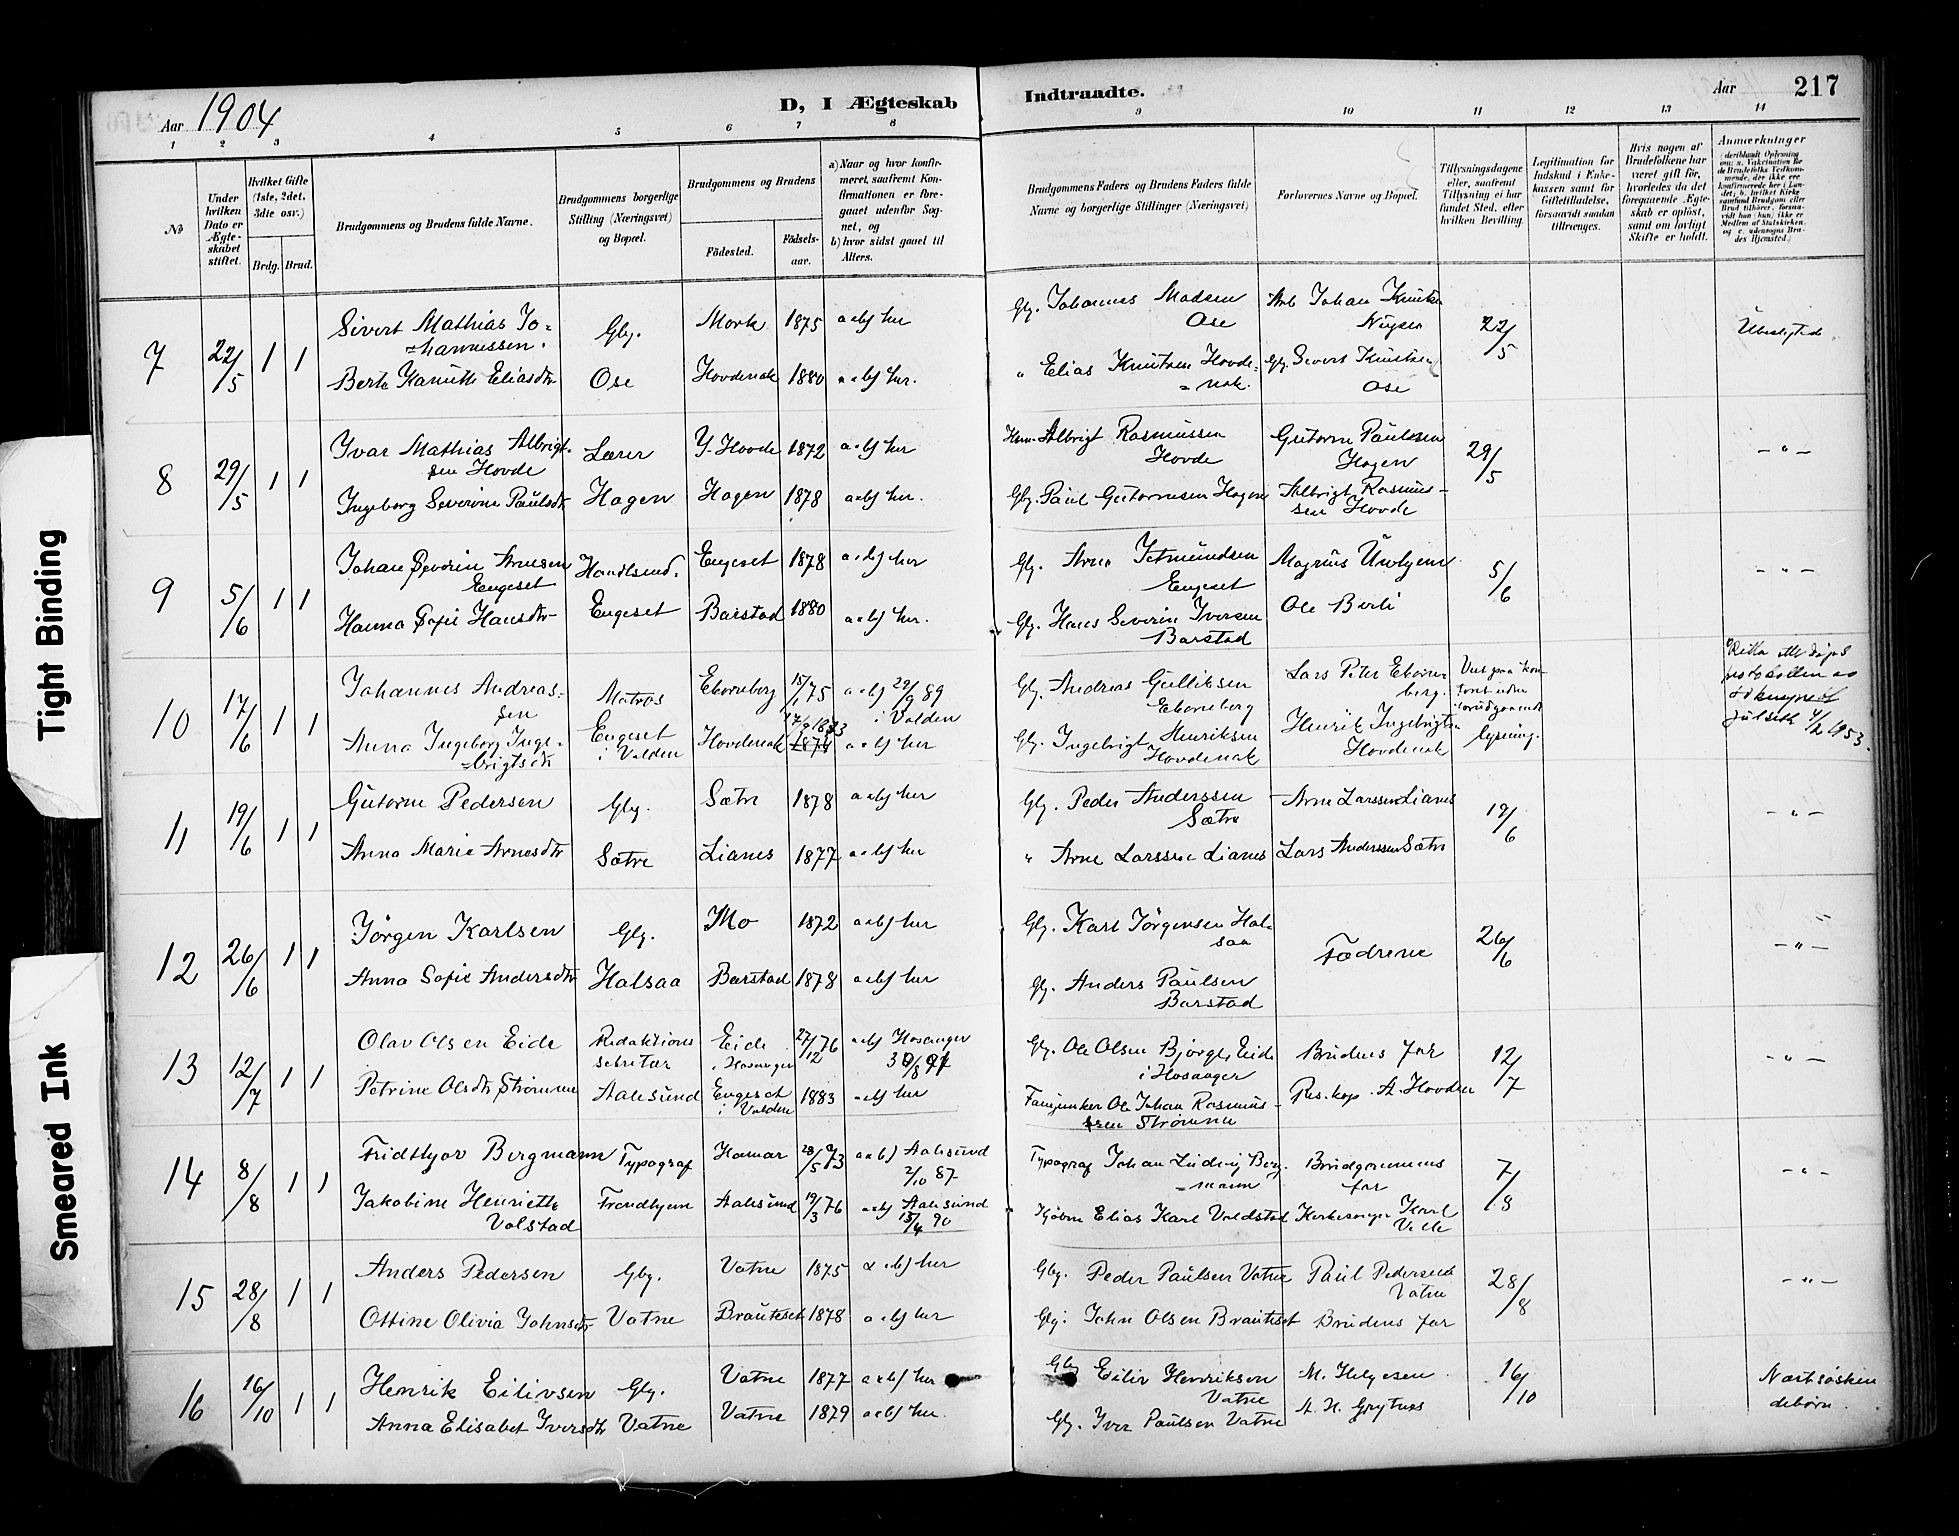 Tight Binding
Smeared Ink
Aar 1904
D, I Ægteskab
Indtraadte.
Aar
217
1 2 3 4 5 6 7 8 9 10 11 12 13 14
No
Under hvilken Dato er Ægteskabet stiftet.
Hvilket Gifte (1ste, 2det, 3die osv.)
Brdg. Brud.
Brudgommens og Brudens fulde Navne.
Brudgommens borgerlige Stilling (Næringsvei) og Bopæl.
Brudgommens og Brudens
Fødested.
Fødselsaar.
a) Naar og hvor konfirmeret, saafremt Konfirmationen er foregaaet udenfor Sognet, og
b) hvor sidst gaaet til Alters.
Brudgommens Faders og Brudens Faders fulde Navne og borgerlige Stillinger (Næringsvei)
Forlovernes Navne og Bopæl.
Tillysningsdagene eller, saafremt Tillysning ei har fundet Sted, efter hvilken Bevilling.
Legitimation for Indskud i Enkekassen samt for Giftetilladelse, forsaavidt saadan tiltrænges.
Hvis nogen af Brudefolkene har været gift før, hvorledes da det foregaaende Ægteskab er opløst, samt om lovligt Skifte er holdt.
Anmærkninger
7 22/5 1 1 Sivert Mathias Jo=
=hannessen. Gbg. Mork 1875 a & b) her Gbg. Johannes Madsen
Ose Arb Johan Knutsen
22/5 Ubeslegtede
Elias Knutsen Hovde=
=nak. Gbg Sivert Knutsen
Ose
Ose Hovdenak 1880 a & b) her.
8 29/5 1 1 Ivar Mathias Albrigt-
sen Hovde Lærer Y. Hovde 1872 a & b) her Albrigt Rasmussen
Hovde Gutorm Paulsen
Hagen 29/5 - " -
Ingeborg Severine Paulsdtr Hagen Hagen 1878 a & b) her. Gbg. Paul Gutormsen Hagen Albrigt Rasmus-
sen Hovde
9 5/6 1 1 Johan Severin Arnesen
Engeset Engeset 1878 a & b) her Gbg. Arne Jetmundsen
Engeset Magnus Uxhjem 5/6 - " -
Hanna Sofie Hansdtr Engeset Barstad 1880 a & b) her. Gbg. Hans Severin Iversen
Barstad
10 17/6 1 1 Johannes Andreas-
sen Matros Ekorneberg 15/1 75 a & b) 29/9 89
i Volden Gbg. Andreas Gulliksen
Ekorneberg Lars Peter Ekorne
berg. Viet paa kon
toret uden
forudgaaende
lysning.
Anna Ingeborg Inge-
=brigtsdtr Engeset
i Volden Hovdenak 17/9 1873 a & b) her Gbg. Ingebrigt Henriksen
Hovdenak Henrik Ingebrigtsen
Hovdenak
11 19/6 1 1 Gutorm Pedersen Gbg. Sætre 1878 a & b) her Gbg. Peder Anderssen
Sætre Arne Larssen Lianes 19/6 - " -
Anna Marie Arnesdtr Sætre Lianes 1877 a & b) her " Arne Larssen Lianes Lars Anderssen Sætre
12 26/6 1 1 Jörgen Karlsen Gbg. Mo 1872 a & b) her Gbg. Karl Jörgensen Hal-
saa Fædrene 26/6 - " -
Anna Sofie Andersdtr Halsaa Barstad 1878 a & b) her Gbg. Anders Paulsen
Barstad
13 12/7 1 1 Olav Olsen Eide Redaktions
sekretær Eide
i Hosanger 27/12 76 a & b) Hosanger Gbg. Ole Olsen Bjørge, Eide
i Hosanger Brudens far 12/7 - " -
Petrine Olsdtr Strømme Aalesund Engeset
i Volden 1883 a & b) her Fanejunker Ole Johan Rasmus-
sen Strømme Res. kap. A. Hovden
14 8/8 1 1 Fridthjov Bergmann Typograf Hamar 28/5 73 a & b) Aalesund
2/10 87 Typograf Johan Ludvig Berg-
=mann Brudgommens
far 7/8 - " -
Jakobine Henriette
Volstad Trondhjem Aalesund 19/3 76 a & b) Aalesund
13/4 90 Kjøbm Elias Karl Voldstad Kirkesanger Karl
15 28/8 1 1 Anders Pedersen Gbg. Vatne 1875 a & b) her Gbg. Peder Paulsen Vatne Paul Pedersen
Vatne 28/8 - " -
Ottine Olivia Johnsdtr Vatne Brauteset 1878 a & b) her Gbg. John Olsen Brauteset Brudens far
16 16/10 1 1 Henrik Eilivsen Gbg. Vatne 1877 a & b) her Gbg Eiliv Henriksen
Vatne M. Helgesen 16/10 Næstsøsken
debørn.
Anna Elisabet Iversdtr Vatne Vatne 1879 a & b) her. Gbg. Iver Paulsen Vatne A. H. Grytnes